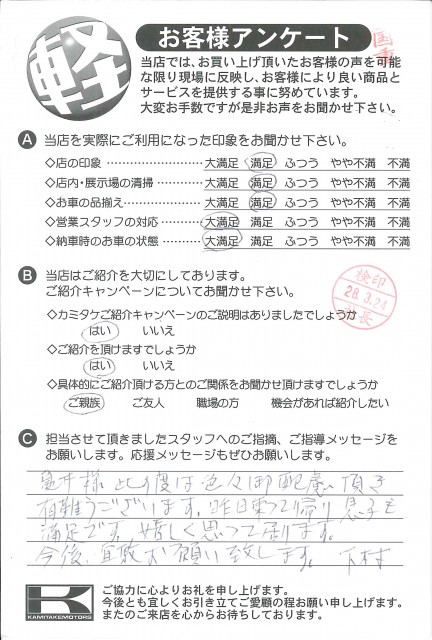 軽
お客様アンケート
国重
当店では、お買い上げ頂いたお客様の声を可能
な限り現場に反映し、お客様により良い商品と
サービスを提供する事に努めています。
大変お手数ですが是非お声をお聞かせ下さい。
A 当店を実際にご利用になった印象をお聞かせ下さい。
◇店の印象 …………………… 大満足 満足 ふつう やや不満 不満
◇店内・展示場の清掃………… 大満足 満足 ふつう やや不満 不満
◇お車の品揃え………………… 大満足 満足 ふつう やや不満 不満
◇営業スタッフの対応………… 大満足 満足 ふつう やや不満 不満
◇納車時のお車の状態………… 大満足 満足 ふつう やや不満 不満
B 当店はご紹介を大切にしております。
ご紹介キャンペーンについてお聞かせ下さい。
検印
28.3.24
社長
◇カミタケご紹介キャンペーンのご説明はありましたでしょうか
はい いいえ
◇ご紹介を頂けますでしょうか
はい いいえ
◇具体的にご紹介頂ける方とのご関係をお聞かせ頂けますでしょうか
ご親族 ご友人 職場の方 機会があれば紹介したい
C 担当させて頂きましたスタッフへのご指摘、ご指導メッセージを
お願いします。応援メッセージもぜひお願いします。
亀井様 この度は色々御配慮頂き
有難うございます。昨日乗って帰り 息子も
満足です。嬉しく思って居ります。
今後、宜敷お願い致します。 下村
K
KAMITAKEMOTORS
ご協力に心よりお礼を申し上げます。
今後とも宜しくお引き立てご愛顧の程お願い申し上げます。
またのご来店を心からお待ちしております。